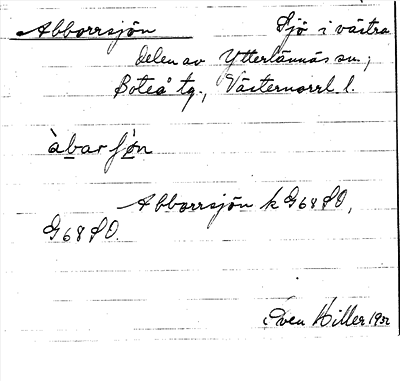 Abborrsjön Sjö i västra
delen av Ytterlännäs sn,
Boteå tg., Västernorrl. l.
àbarʃö̀n
Abborrsjön k G68SO,
G68SO.
Sven Hiller 1932